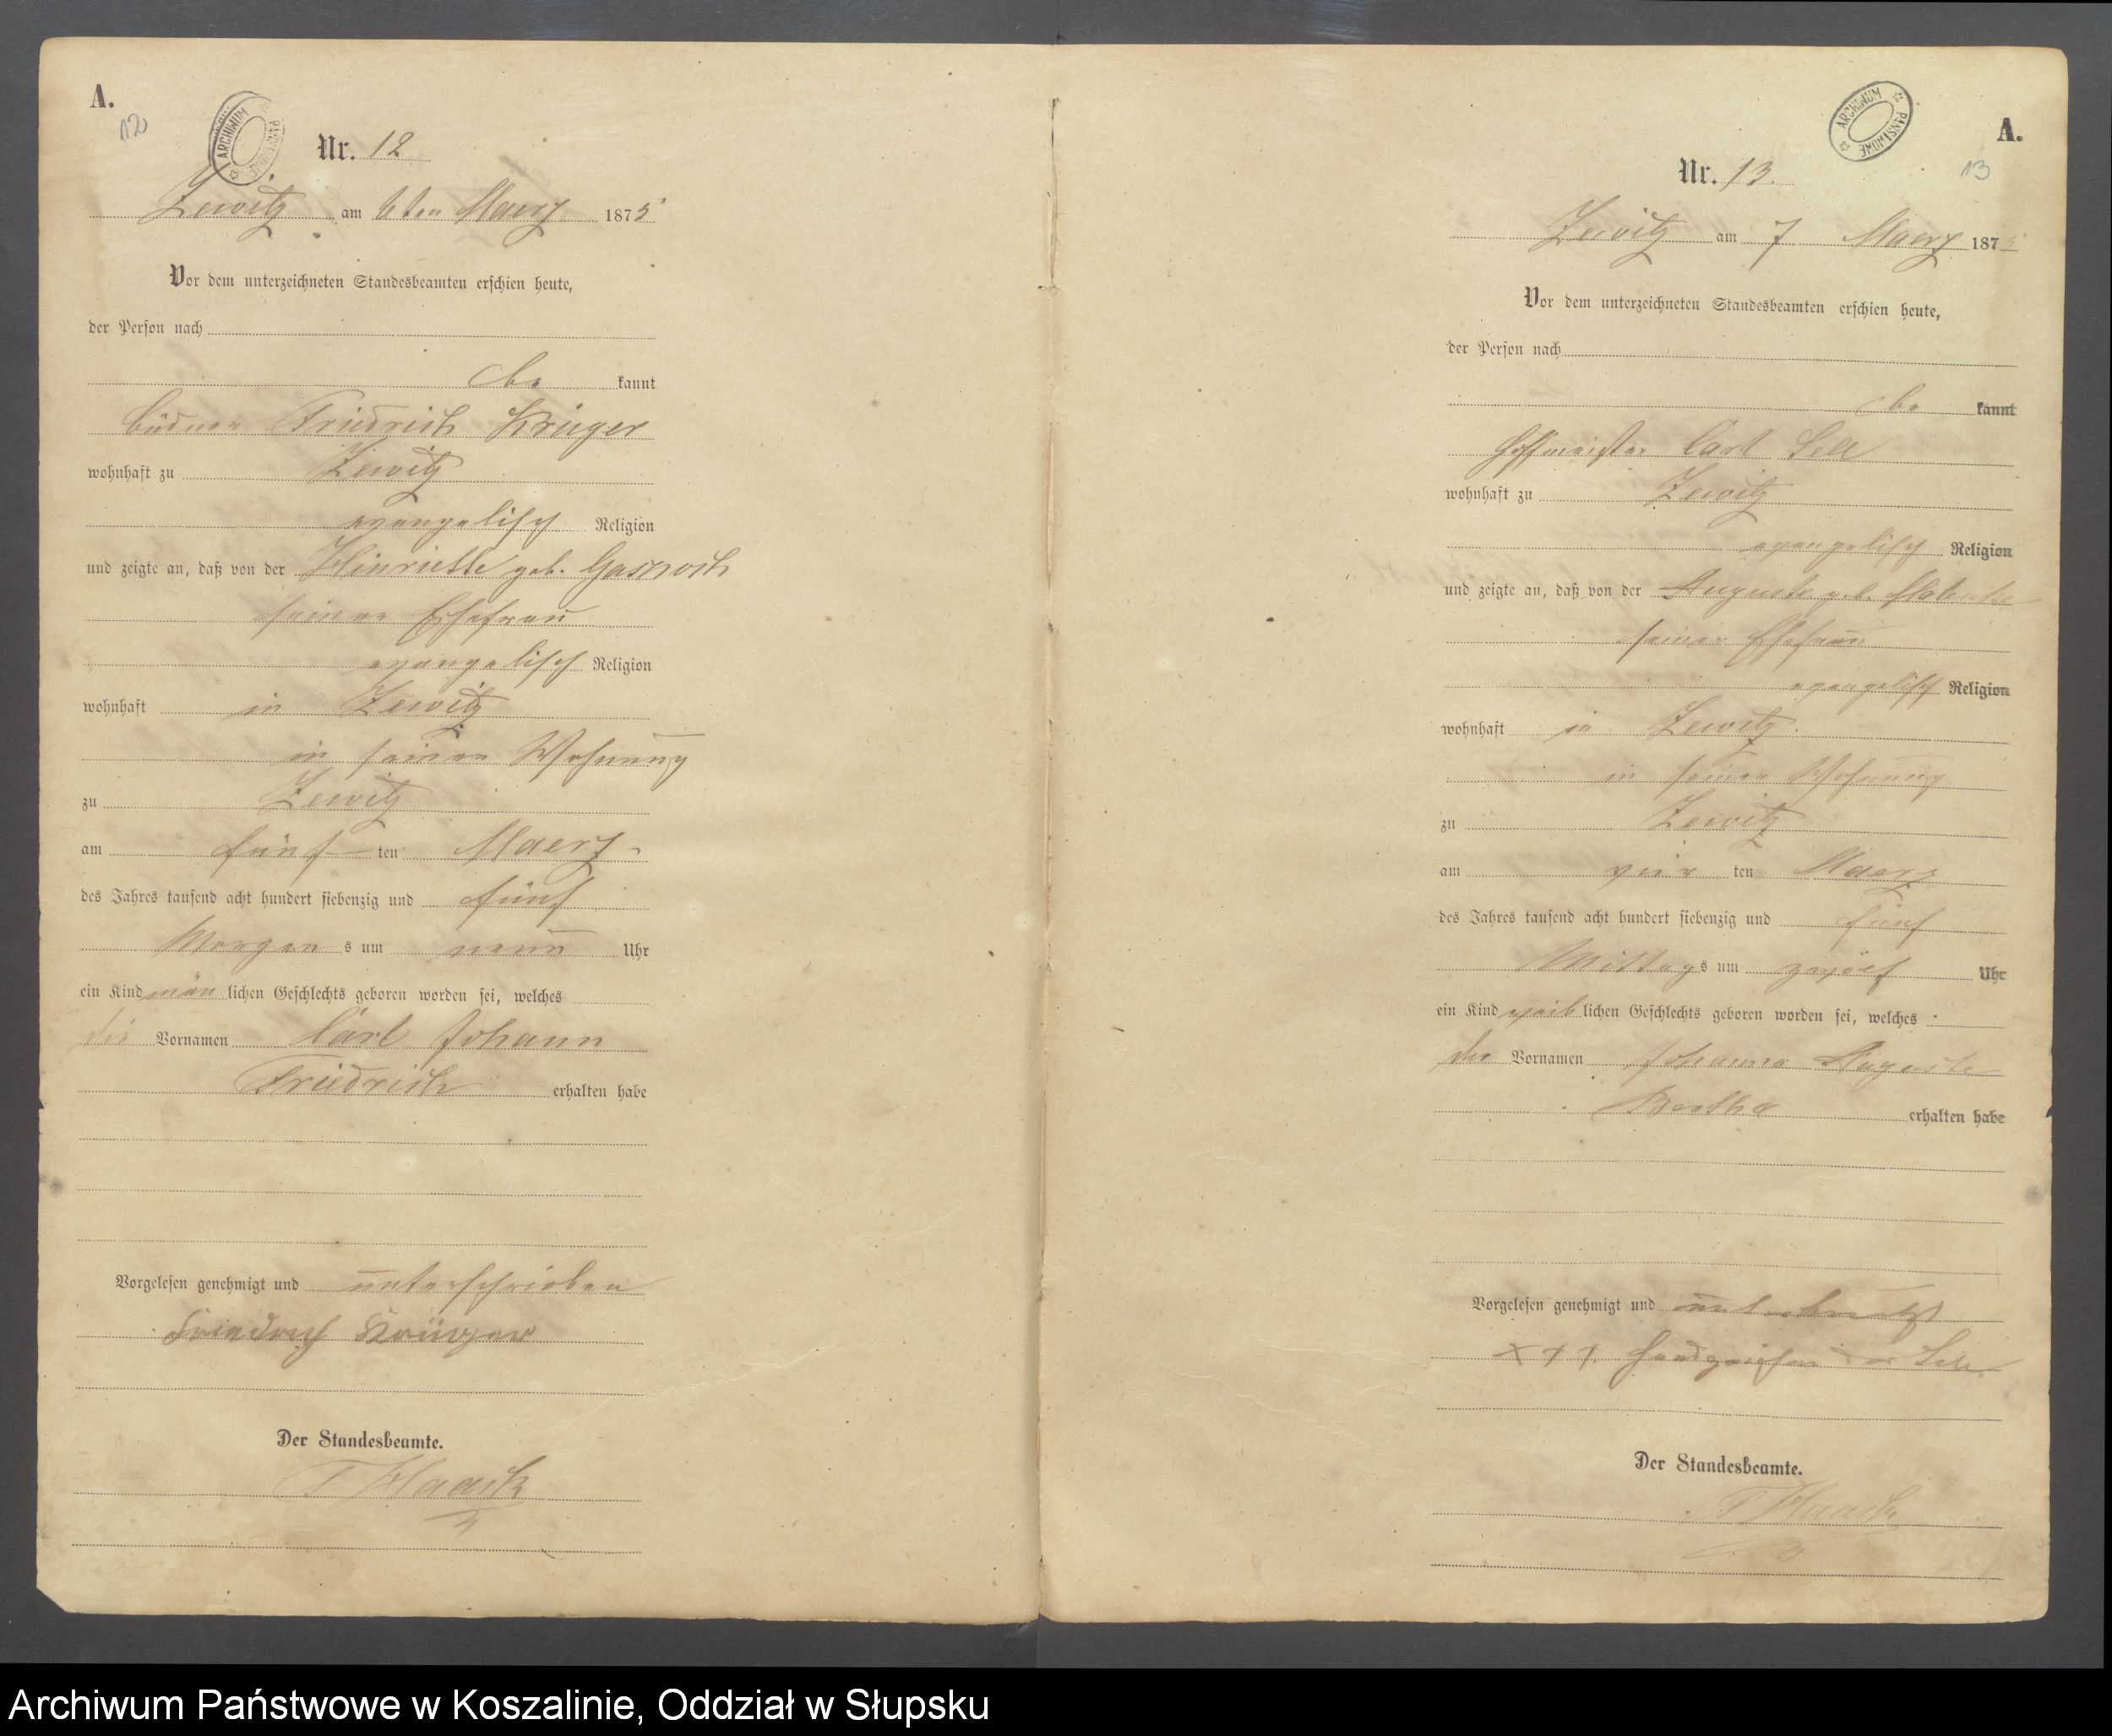 A.
12
ARCHIWUM PAŃSTWOWE
Nr. 12
Zewitz am 6ten Maerz 1875
Vor dem unterzeichneten Standesbeamten erschien heute,
der Person nach
be kannt
Büdner Friedrich Krüger
wohnhaft zu Zewitz
evangelisch Religion
und zeigte an, daß von der Hinriette geb.
seiner Ehefrau
evangelisch Religion
wohnhaft in Zewitz
in seiner Wohnung
zu Zewitz
am fünf ten Maerz
des Jahres tausend acht hundert siebenzig und fünf
Morgen s um neun Uhr
ein Kind män lichen Geschlechts geboren worden sei, welches
die Vornamen Carl Johann
Friedrich erhalten habe
Vorgelesen genehmigt und unterschrieben
Friedrich Krüger
Der Standesbeamte.
Haack
ARCHIWUM PAŃSTWOWE
A.
13
Nr. 13.
Zewitz am 7 Maerz 1875
Vor dem unterzeichneten Standesbeamten erschien heute,
der Person nach
be kannt
Hoffmeister Carl Sell
wohnhaft zu Zewitz
evangelisch Religion
und zeigte an, daß von der Auguste geb.
seiner Ehefrau
evangelisch Religion
wohnhaft in Zewitz.
in seiner Wohnung
zu Zewitz
am vier ten Maerz
des Jahres tausend acht hundert siebenzig und fünf
Mittags um zwölf Uhr
ein Kind weib lichen Geschlechts geboren worden sei, welches
die Vornamen Johanna Auguste
Bertha erhalten habe
Vorgelesen genehmigt und unterkreuzt
+ + + Handzeichen der Sell
Der Standesbeamte.
Haack
Archiwum Państwowe w Koszalinie, Oddział w Słupsku